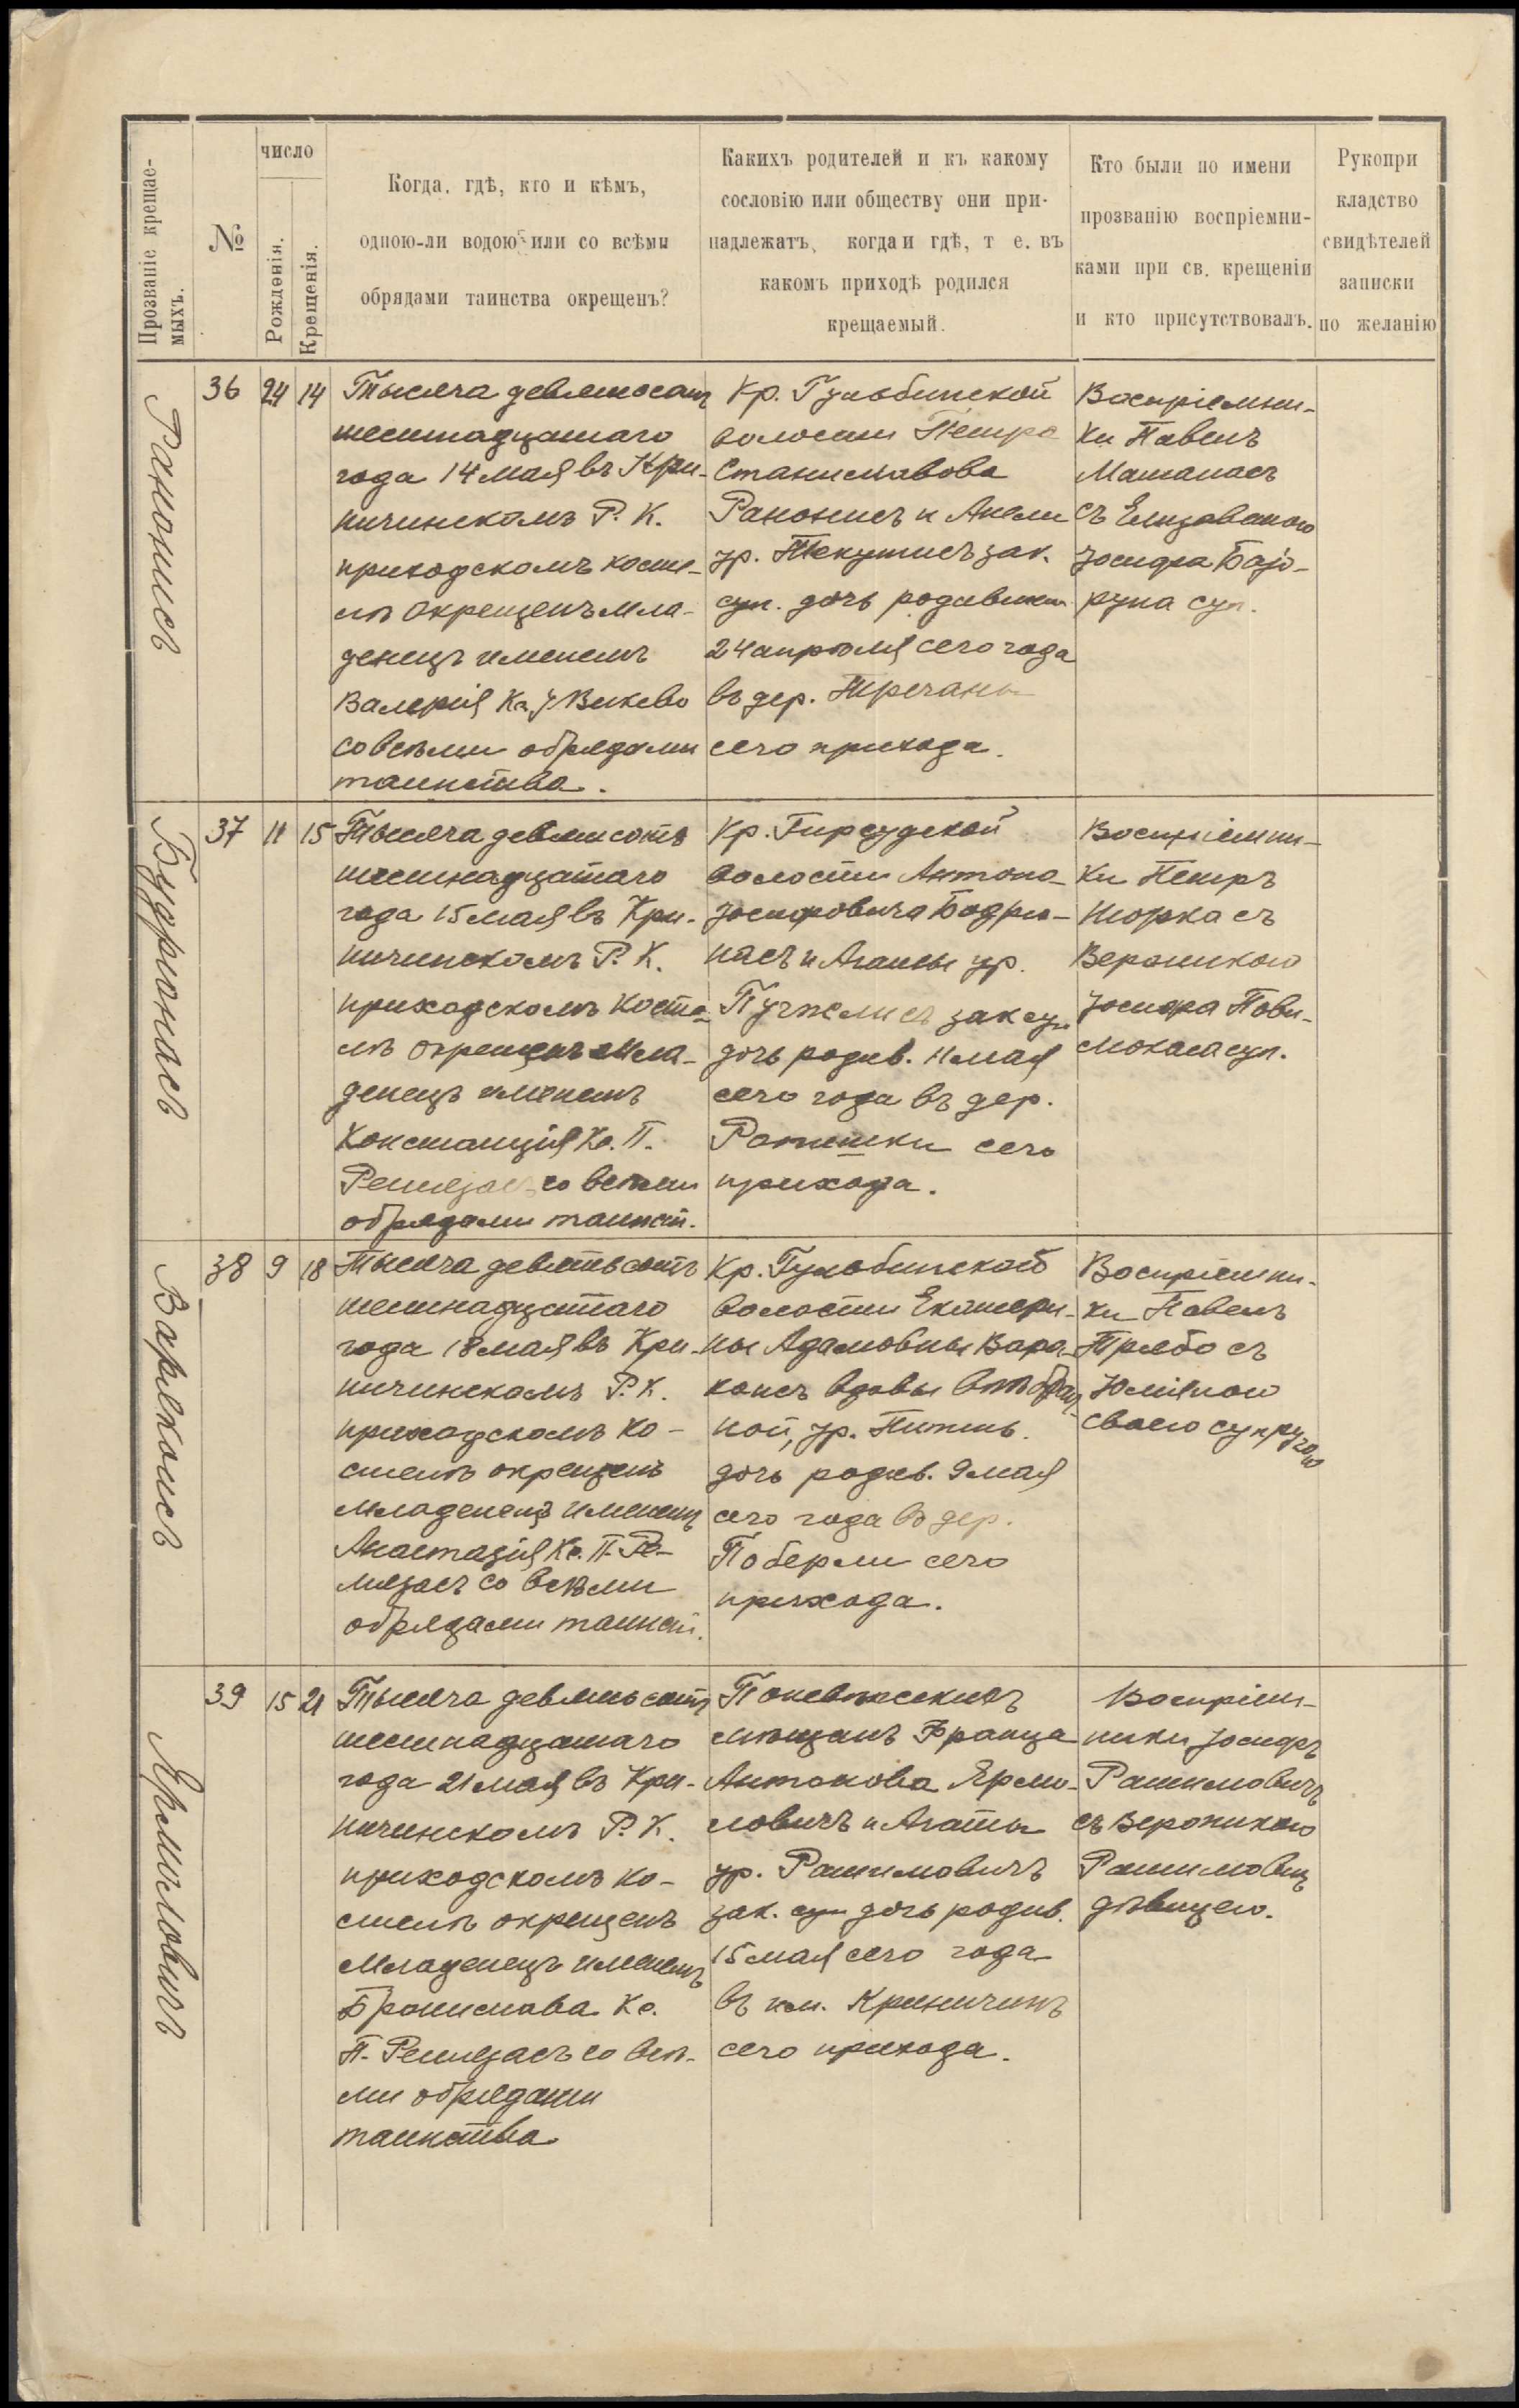 Прозваніе крещае-
мыхъ.
№
число
Рожденія.
Крещенія.
Когда, гдѣ, кто и кѣмъ,
одною-ли водою или со всѣми
обрядами таинства окрещенъ?
Какихъ родителей и къ какому
сословію или обществу они при-
надлежатъ, когда и гдѣ, т е. въ
какомъ приходѣ родился
крещаемый.
Кто были по имени
прозванію воспріемни-
ками при св. крещеніи
и кто присутствовалъ.
Рукопри
кладство
свидѣтелей
записки
по желанію
Ранонисъ
36 24 14
Тысяча девятьсотъ
шестнадцатаго
года 14 мая въ Кри-
ничинскомъ Р. К.
приходскомъ косте-
лѣ окрещенъ мла-
денецъ именемъ
Валерія Кс.
со всѣми обрядами
таинства.
Кр. Гульбинской
волости Петра
Станиславова
Ранонисъ и Анели
ур. зак.
суп. дочь родившая
24 апрѣля сего года
въ дер. Тречаны
сего прихода.
Воспріемни-
ки Павелъ
Маталасъ
съ Елизаветою
Іосифа
суп.
Будрюнасъ
37 11 15
Тысяча девятьсотъ
шестнадцатаго
года 15 мая въ Кри-
ничинскомъ Р. К.
приходскомъ косте-
лѣ окрещенъ мла-
денецъ именемъ
Констанція Кс. П.
Ремезасъ со всѣми
обрядами таинст.
Кр. Гирсудской
волости Антона
Іосифовича Бодрю-
насъ и Агаты ур.
зак суп
дочь родив. 11 мая
сего года въ дер.
сего
прихода.
Воспріемни-
ки Петръ
Шорка съ
Вероникою
Іосифа Пови-
локаса суп.
Варяконсъ
38 9 18
Тысяча девятьсотъ
шестнадцатаго
года 18 мая въ Кри-
ничинскомъ Р. К.
приходскомъ ко-
стелѣ окрещенъ
младенецъ именемъ
Анастазія Кс. П. Ре-
мезасъ со всѣми
обрядами таинст.
Кр. Гульбинской
волости Екатери-
ны Адамовны Варя-
консъ вдовы
ной, ур.
дочь родив. 9 мая
сего года въ дер.
Побержи сего
прихода.
Воспріемни-
ки Павелъ
Трябо съ
Юліяною
своею супругою
Ярмиловичъ
39 15 21
Тысяча девятьсотъ
шестнадцатаго
года 21 мая въ Кри-
ничинскомъ Р. К.
приходскомъ ко-
стелѣ окрещенъ
младенецъ именемъ
Бронислава Кс.
П. Ремезасъ со всѣ-
ми обрядами
таинства
Поневѣжскихъ
мѣщанъ Франца
Антонова Ярми-
ловичъ и Агаты
ур. Рашимовичъ
зак. суп дочь родив.
15 мая сего года
въ им. Криничинъ
сего прихода.
Воспріем-
ники Іосифъ
Рашимовичъ
съ Вероникою
Рашимовичъ
дѣвицею.